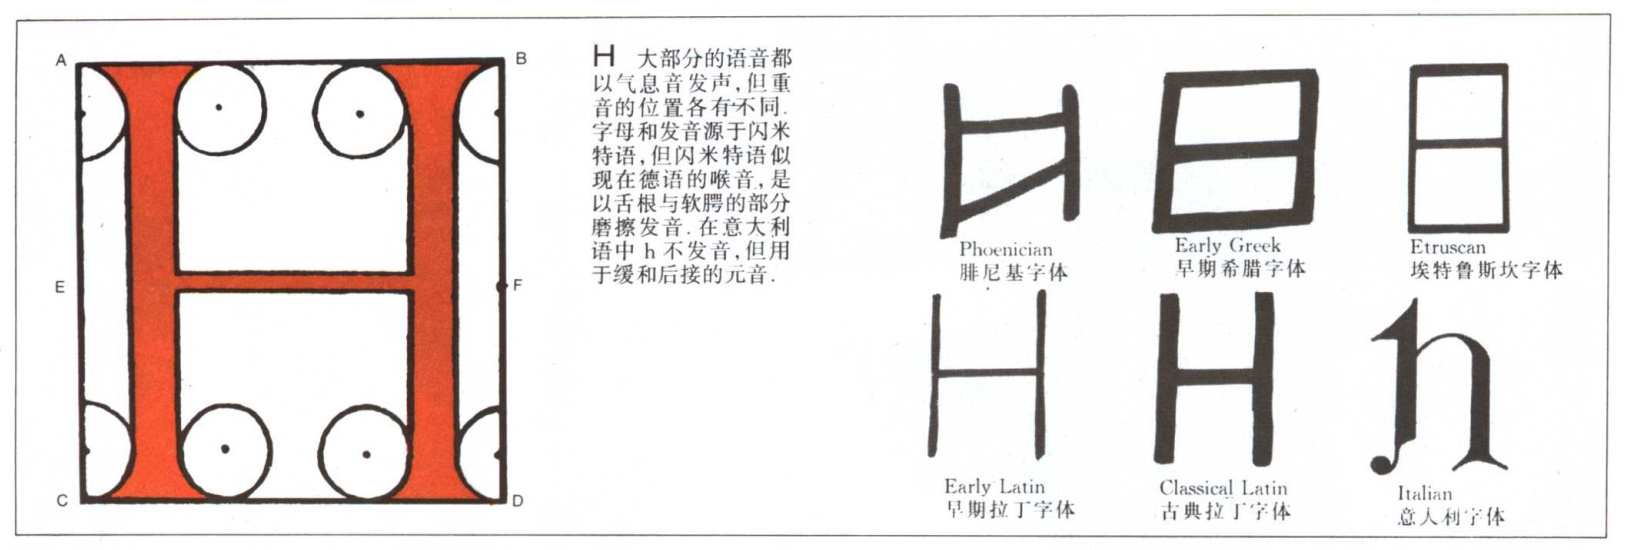 A
B
E
F
C
D
H 大部分的语音都
以气息音发声,但重
音的位置各有不同.
字母和发音源于闪米
特语,但闪米特语似
现在德语的喉音,是
以舌根与软腭的部分
磨擦发音.在意大利
语中 h 不发音,但用
于缓和后接的元音.
Phoenician
腓尼基字体
Early Greek
早期希腊字体
Etruscan
埃特鲁斯坎字体
Early Latin
早期拉丁字体
Classical Latin
古典拉丁字体
Italian
意人利字体